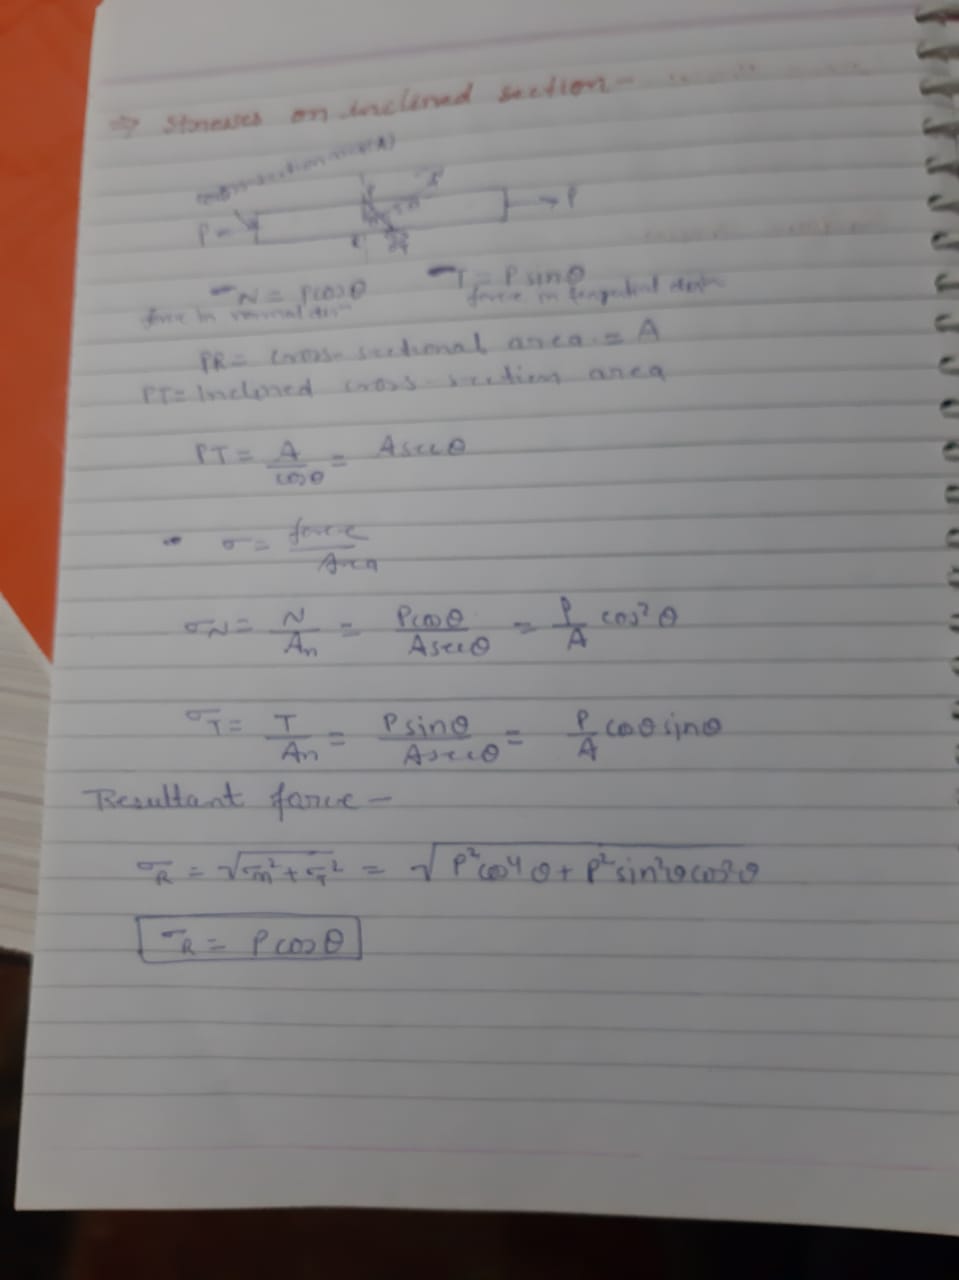 ⇒ Stresses on Inclined section -
P P
N = Pcosθ T = P sinθ
force in normal dirn force in tangential dirn
PR = cross-sectional area = A
PT = Inclined cross-section area
PT = A/cosθ = A secθ
σ = force/Area
σN = N/An = Pcosθ/Asecθ = P/A cos²θ
σT = T/An = P sinθ/Asecθ = P/A cosθ sinθ
Resultant force -
σR = √σn² + σT² = √P²cos⁴θ + P²sin²θcos²θ
σR = P cosθ